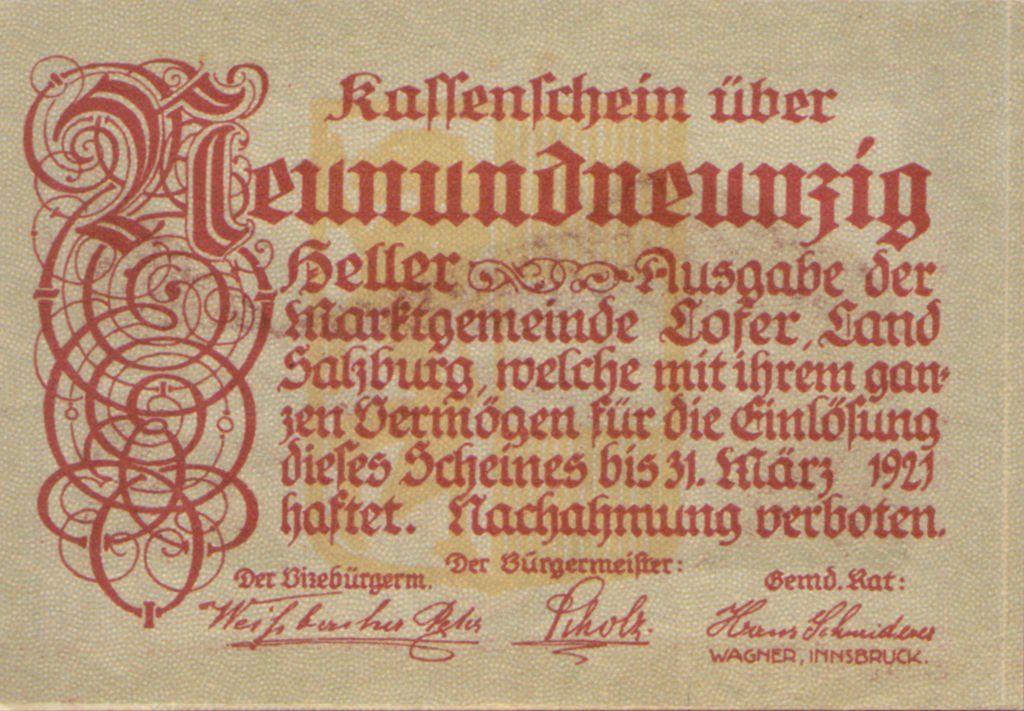 Kassenschein über
Neunundneunzig
Heller Ausgabe der
Marktgemeinde Lofer, Land
Salzburg, welche mit ihrem gan-
zen Vermögen für die Einlösung
dieses Scheines bis 31. März 1921
haftet. Nachahmung verboten.
Der Vizebürgerm. Der Bürgermeister: Gemd. Rat:
Weißbacher Scholz. Hans Schmiderer
WAGNER, INNSBRUCK.